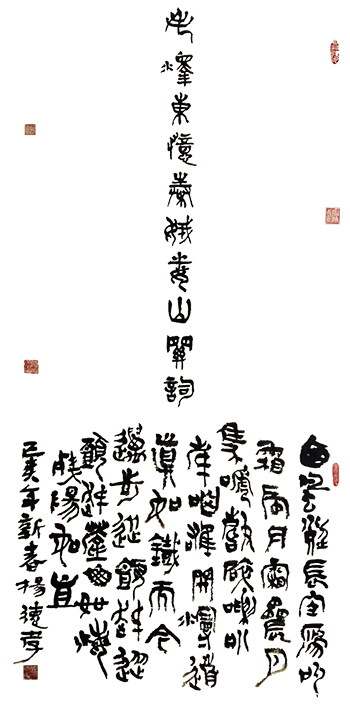 毛澤東憶秦娥婁山關詞
西風烈長空雁叫
霜晨月霜晨月
馬蹄聲碎喇叭
聲咽雄關漫道
真如鐵而今
邁步從頭越從
頭越蒼山如海
殘陽如血
己亥年新春楊德孝